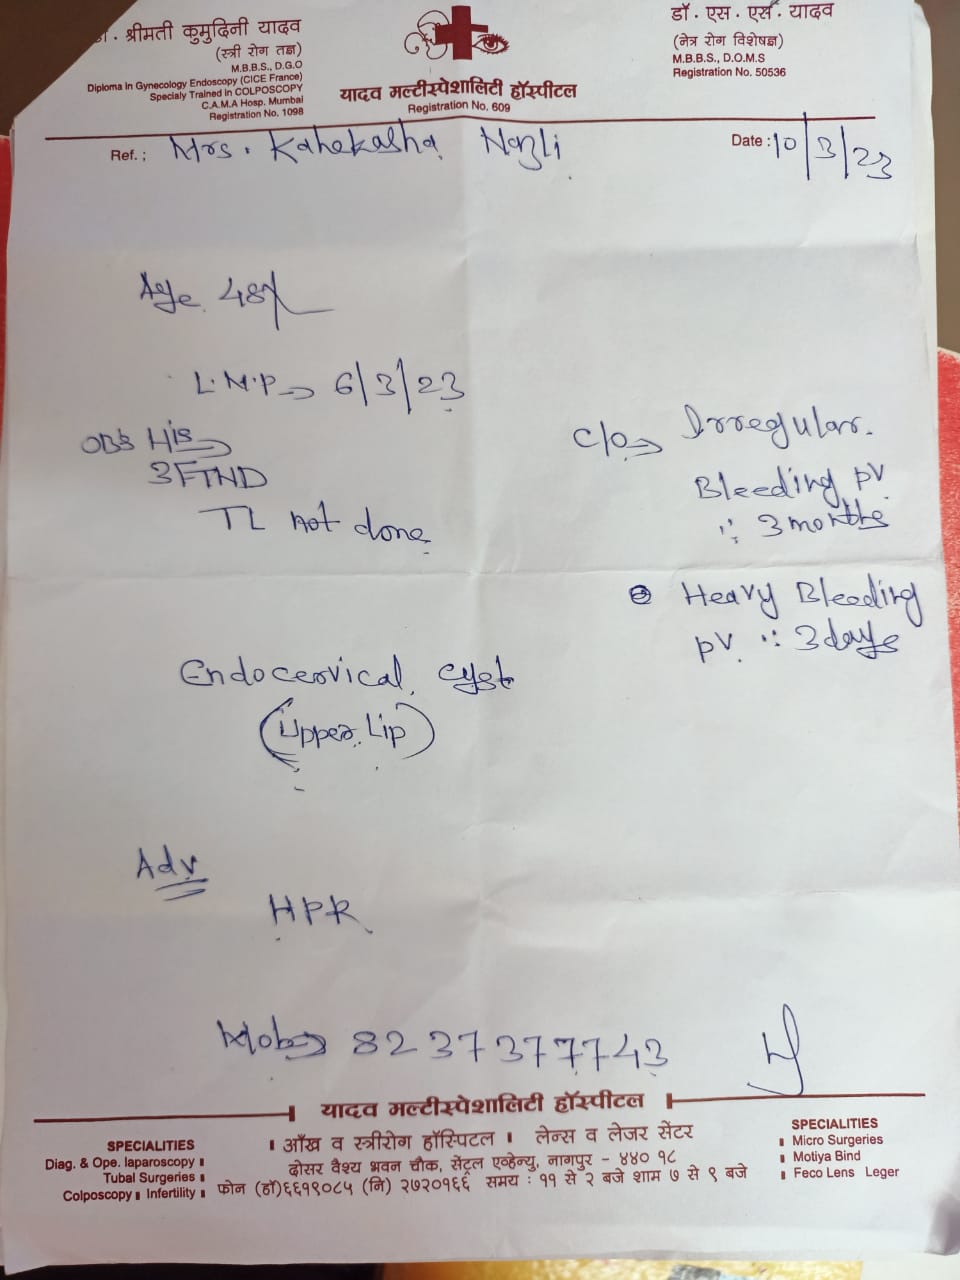 . श्रीमती कुमुदिनी यादव
(स्त्री रोग तज्ञ)
M.B.B.S., D.G.O
Diploma In Gynecology Endoscopy (CICE France)
Specialy Trained in COLPOSCOPY
C.A.M.A Hosp. Mumbai
Registration No. 1098
यादव मल्टीस्पेशालिटी हॉस्पीटल
Registration No. 609
डॉ. एस. एस. यादव
(नेत्र रोग विशेषज्ञ)
M.B.B.S., D.O.M.S
Registration No. 50536
Ref. : Mrs. Kahekasha Nazli
Date : 10/3/23
Age 48y
L.M.P → 6/3/23
OBS His →
3FTND
TL not done
C/O → Irregular
Bleeding PV
∵ 3 months
Heavy Bleeding
PV ∵ 3 days
Endocervical cyst
(Upper Lip)
Adv
HPR
Mob → 8237377743
यादव मल्टीस्पेशालिटी हॉस्पीटल
SPECIALITIES
Diag. & Ope. laparoscopy
Tubal Surgeries
Colposcopy Infertility
। आँख व स्त्रीरोग हॉस्पिटल । लेन्स व लेजर सेंटर
दोसर वैश्य भवन चौक, सेंट्रल एव्हेन्यु, नागपुर - ४४० १८
फोन (हॉ)६६१९०८५ (नि) २७२०१६६ समय : ११ से २ बजे शाम ७ से ९ बजे
SPECIALITIES
Micro Surgeries
Motiya Bind
Feco Lens Leger